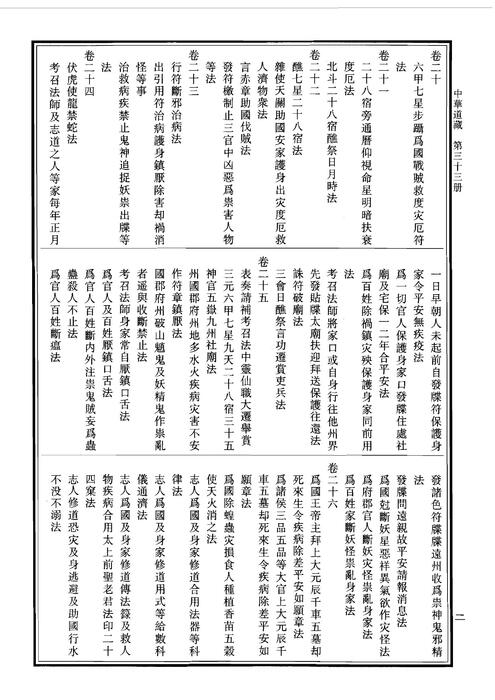 中華道藏　第三十三册
卷二十
六甲七星步躡爲國戰賊救度灾厄符
法
卷二十一
二十八宿旁通曆仰視命星明暗扶衰
度厄法
北斗二十八宿醮祭日月時法
卷二十二
醮七星二十八宿法
雜使天關助國安家護身出灾度厄救
人濟物衆法
言赤章助國伐賊法
發符檄制止三官中凶惡爲祟害人物
等法
卷二十三
行符斷邪治病法
出引用符治病護身鎮厭除害却禍消
怪等事
治救病疾禁止鬼神追捉妖祟出牒等
法
卷二十四
伏虎使龍禁蛇法
考召法師及志道之人等家每年正月
一日早朝人未起前自發牒符保護身
家令平安無疾疫法
爲一切官人保護身家口發牒住處社
廟及宅保一二年合平安法
爲百姓除禍鎮灾殃保護身家同前用
法
考召法師將家口或自身行往他州界
先發貼牒太廟扶迎拜送保護往還法
誅符破廟法
三會日醮祭言功遷賞吏兵法
卷二十五
表奏請補考召法中靈仙職大遷舉賞
三元六甲七星九天二十八宿三十五
神官五嶽九州社廟法
州國郡府州地多水火疾病灾害不安
作符章鎮厭法
國郡府州破山魈鬼及妖精鬼作祟亂
者遥與收斷禁止法
考召法師身家常自厭鎮口舌法
爲官人及百姓厭鎮口舌法
爲官人百姓斷内外注祟鬼賊妄爲蟲
蠱殺人不止法
爲官人百姓斷瘟法
發諸色符牒牒遠州收爲祟神鬼邪精
法
發牒問遠親故平安請報消息法
爲國尅斷妖星惡祥異氣欲作灾怪法
爲府郡官人斷妖灾怪祟亂身家法
爲百姓家斷妖怪祟亂身家法
卷二十六
爲國王帝主拜上大元辰千車五墓却
死來生令疾病除差平安如願章法
爲諸侯三品五品等大官上大元辰千
車五墓却死來生令疾病除差平安如
願章法
爲國除蝗蟲灾損食人種植香苗五穀
使天火消之法
志人爲國及身家修道合用法器等科
律法
志人爲國及身家修道用式等給數科
儀通濟法
志人爲國及身家修道傳法籙及救人
物疾病合用太上前聖老君法印二十
四窠法
志人修道恐灾及身逃避及助國行水
不没不溺法
二